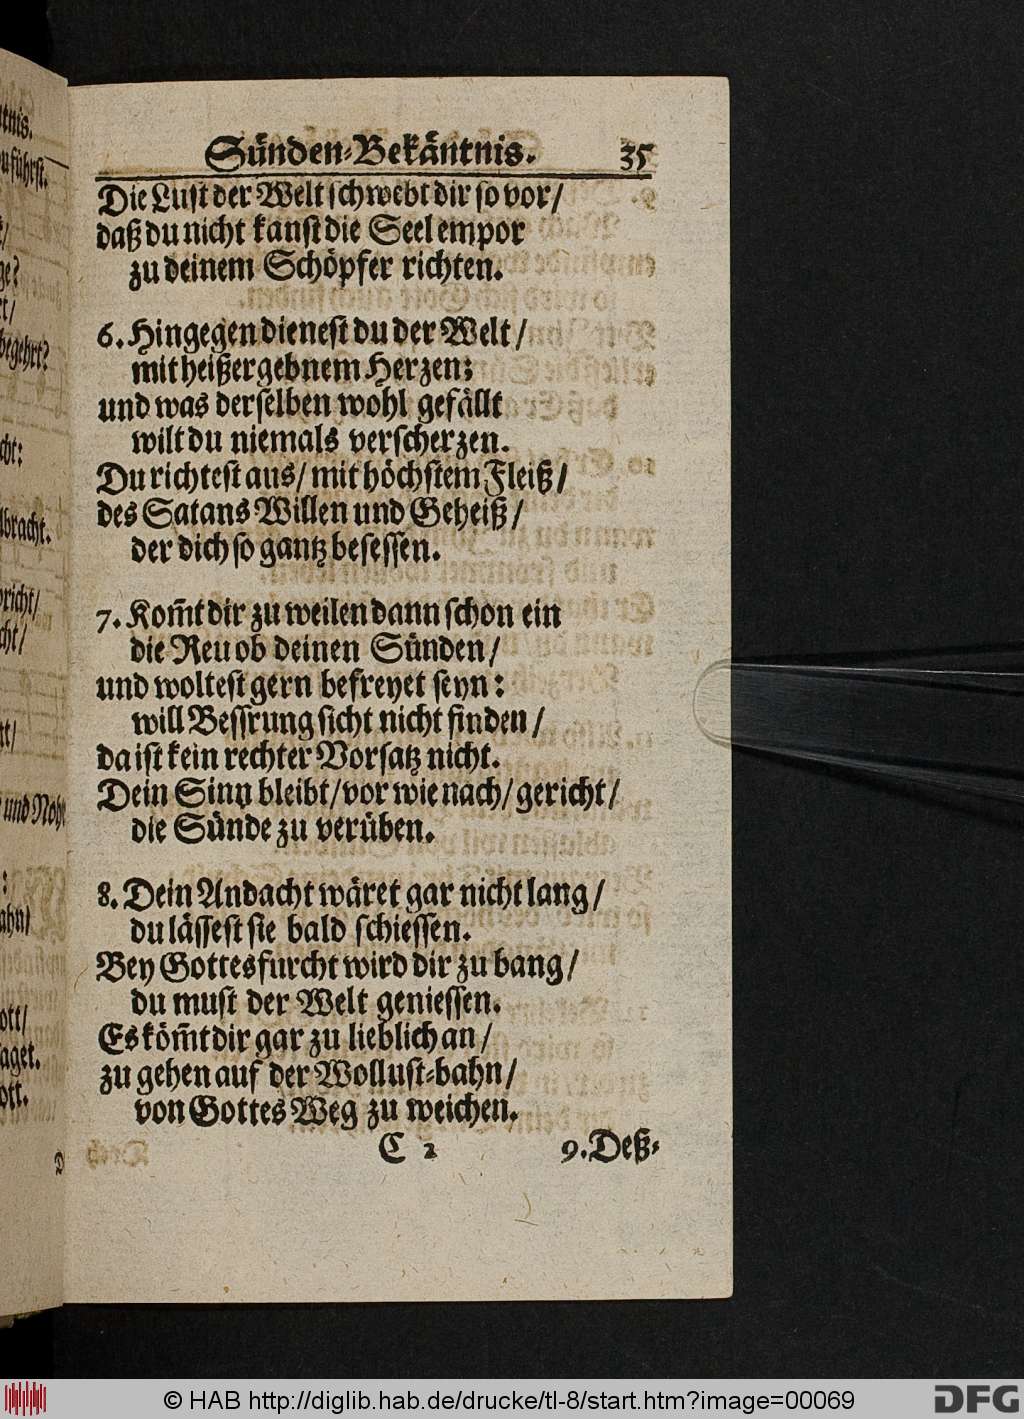 Sünden-Bekäntnis. 35
Die Lust der Welt schwebt dir so vor/
daß du nicht kanst die Seel empor
zu deinem Schöpfer richten.
6. Hingegen dienest du der Welt/
mit heißergebnem Herzen;
und was derselben wohl gefällt
wilt du niemals verscherzen.
Du richtest aus/ mit höchstem Fleiß/
des Satans Willen und Geheiß/
der dich so gantz besessen.
7. Kom̃t dir zu weilen dann schon ein
die Reu ob deinen Sünden/
und woltest gern befreyet seyn:
will Bessrung sicht nicht finden/
da ist kein rechter Vorsatz nicht.
Dein Sinn bleibt/ vor wie nach/ gericht/
die Sünde zu verüben.
8. Dein Andacht wäret gar nicht lang/
du lässest sie bald schiessen.
Bey Gottesfurcht wird dir zu bang/
du must der Welt geniessen.
Es köm̃t dir gar zu lieblich an/
zu gehen auf der Wollust-bahn/
von Gottes Weg zu weichen.
C 2 9. Deß-
© HAB http://diglib.hab.de/drucke/tl-8/start.htm?image=00069
DFG